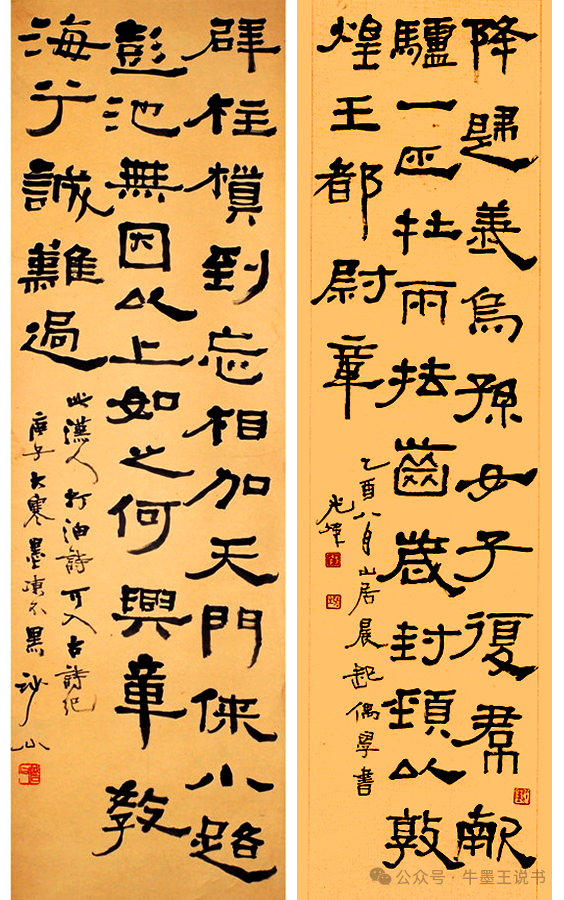 降歸義烏孫女子復帬獻
驢一匹牡兩抾齒歲封頸以敦
煌王都尉章
乙酉八月山居晨起偶學書
光煒
辟柱槓到忘相加天門俠小路
彭池無因以上如之何興章教
海兮誠難過
此漢人打油詩可入古詩紀
庚子大寒墨凍不黑 沙山
公众号·牛墨王说书